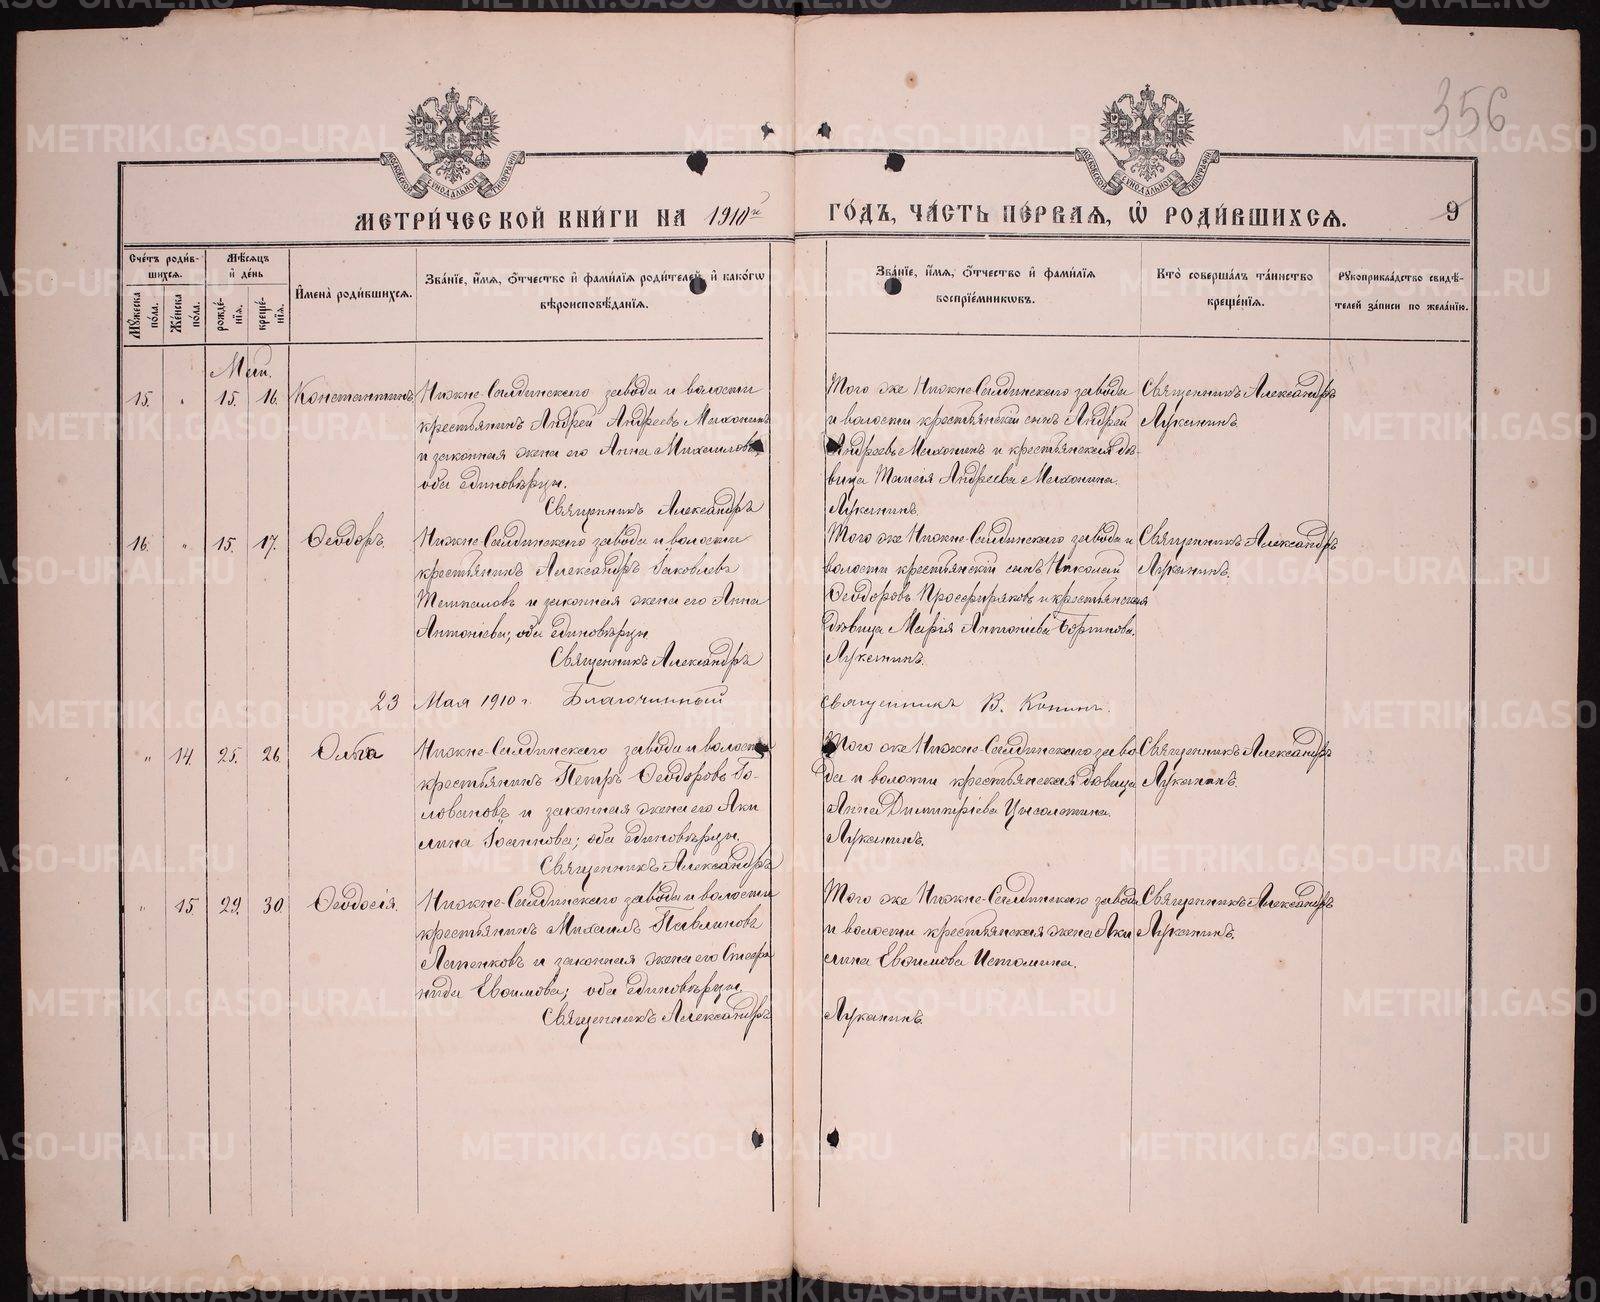 356
МЕТРИ́ЧЕСКОЙ КНИ́ГИ НА 1910й ГО́ДЪ, ЧА́СТЬ ПЕ́РВАЯ, Ѡ РОДИ́ВШИХСЯ.
9
Сче́тъ роди́вшихся.
Му́жеска по́ла.
Же́нска по́ла.
Мѣ́сяцъ и де́нь
рожде́нїя.
креще́нїя.
И̂мена̀ роди́вшихся.
Зва́нїе, и́мя, ѻ́тчество и фами́лїя роди́телей, и како́гѡ
вѣроисповѣ́данїя.
Зва́нїе, и́мя, ѻ́тчество и фами́лїя
воспрїе́мниковъ.
Кто̀ соверша́лъ та́инство
креще́нїя.
Рукоприкла́дство свидѣ́-
телей за́писи по жела́нїю.
Май.
15. „ 15. 16. Константинъ
Нижне-Салдинскаго завода и волости
крестьянинъ Андрей Андреевъ Махонинъ
и законная жена его Анна Михаилова,
оба единовѣрцы.
Священникъ Александръ Луканинъ.
Того же Нижне-Салдинскаго завода
и волости крестьянскій сынъ Андрей
Андреевъ Махонинъ и крестьянская дѣ-
вица Таисія Андреева Махонина.
Священникъ Александръ
Луканинъ.
16. „ 15. 17. Ѳеодоръ.
Нижне-Салдинскаго завода и волости
крестьянинъ Александръ Іаковлевъ
и законная жена его Анна
Антоніева; оба единовѣрцы
Священникъ Александръ Луканинъ.
Того же Нижне-Салдинскаго завода и
волости крестьянскій сынъ Николай
Ѳеодоровъ Просфиряковъ и крестьянская
дѣвица Марія Антоніева
Священникъ Александръ
Луканинъ.
23 Мая 1910 г. Благочинный священникъ В. Конинъ.
„ 14. 25. 26. Ольга
Нижне-Салдинскаго завода и волости
крестьянинъ Петръ Ѳеодоровъ Го-
ловановъ и законная жена его Аки
лина Іоаннова; оба единовѣрцы.
Священникъ Александръ Луканинъ.
Того же Нижне-Салдинскаго заво
да и волости крестьянская дѣвица
Анна Димитріева
Священникъ Александръ
Луканинъ.
„ 15. 29. 30. Ѳеодосія.
Нижне-Салдинскаго завода и волости
крестьянинъ Михаилъ Павлиновъ
Лапенковъ и законная жена его Стефа
нида Евѳимова; оба единовѣрцы.
Священникъ Александръ Луканинъ.
Того же Нижне-Салдинскаго завода
и волости крестьянская жена Аки
лина Евѳимова Истомина.
Священникъ Александръ
Луканинъ.
METRIKI.GASO-URAL.RU